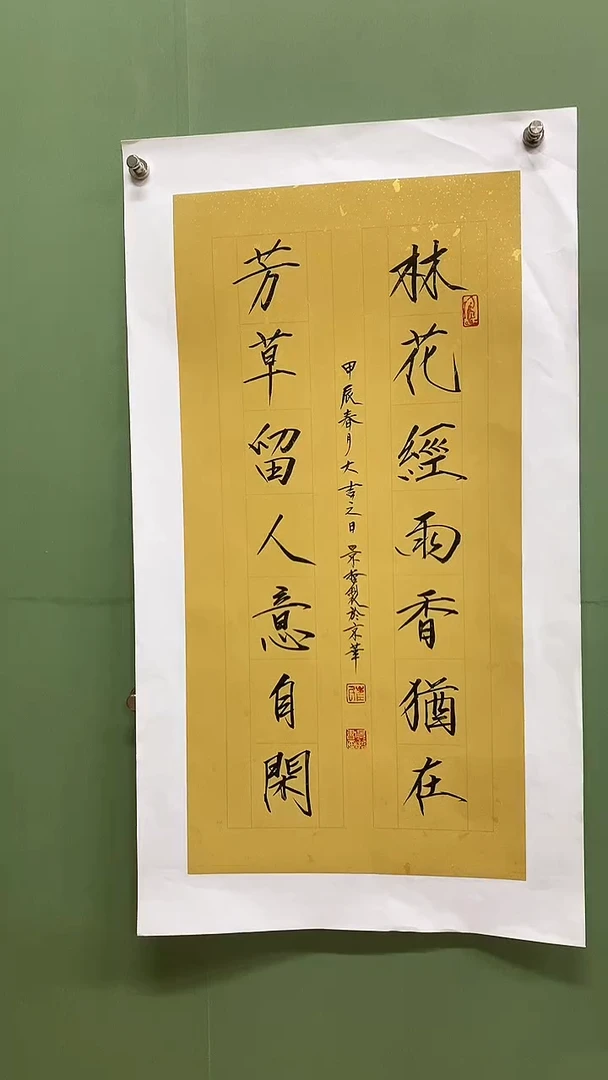 林花經雨香猶在
芳草留人意自閑
甲辰春月大吉之日景哲製於京華